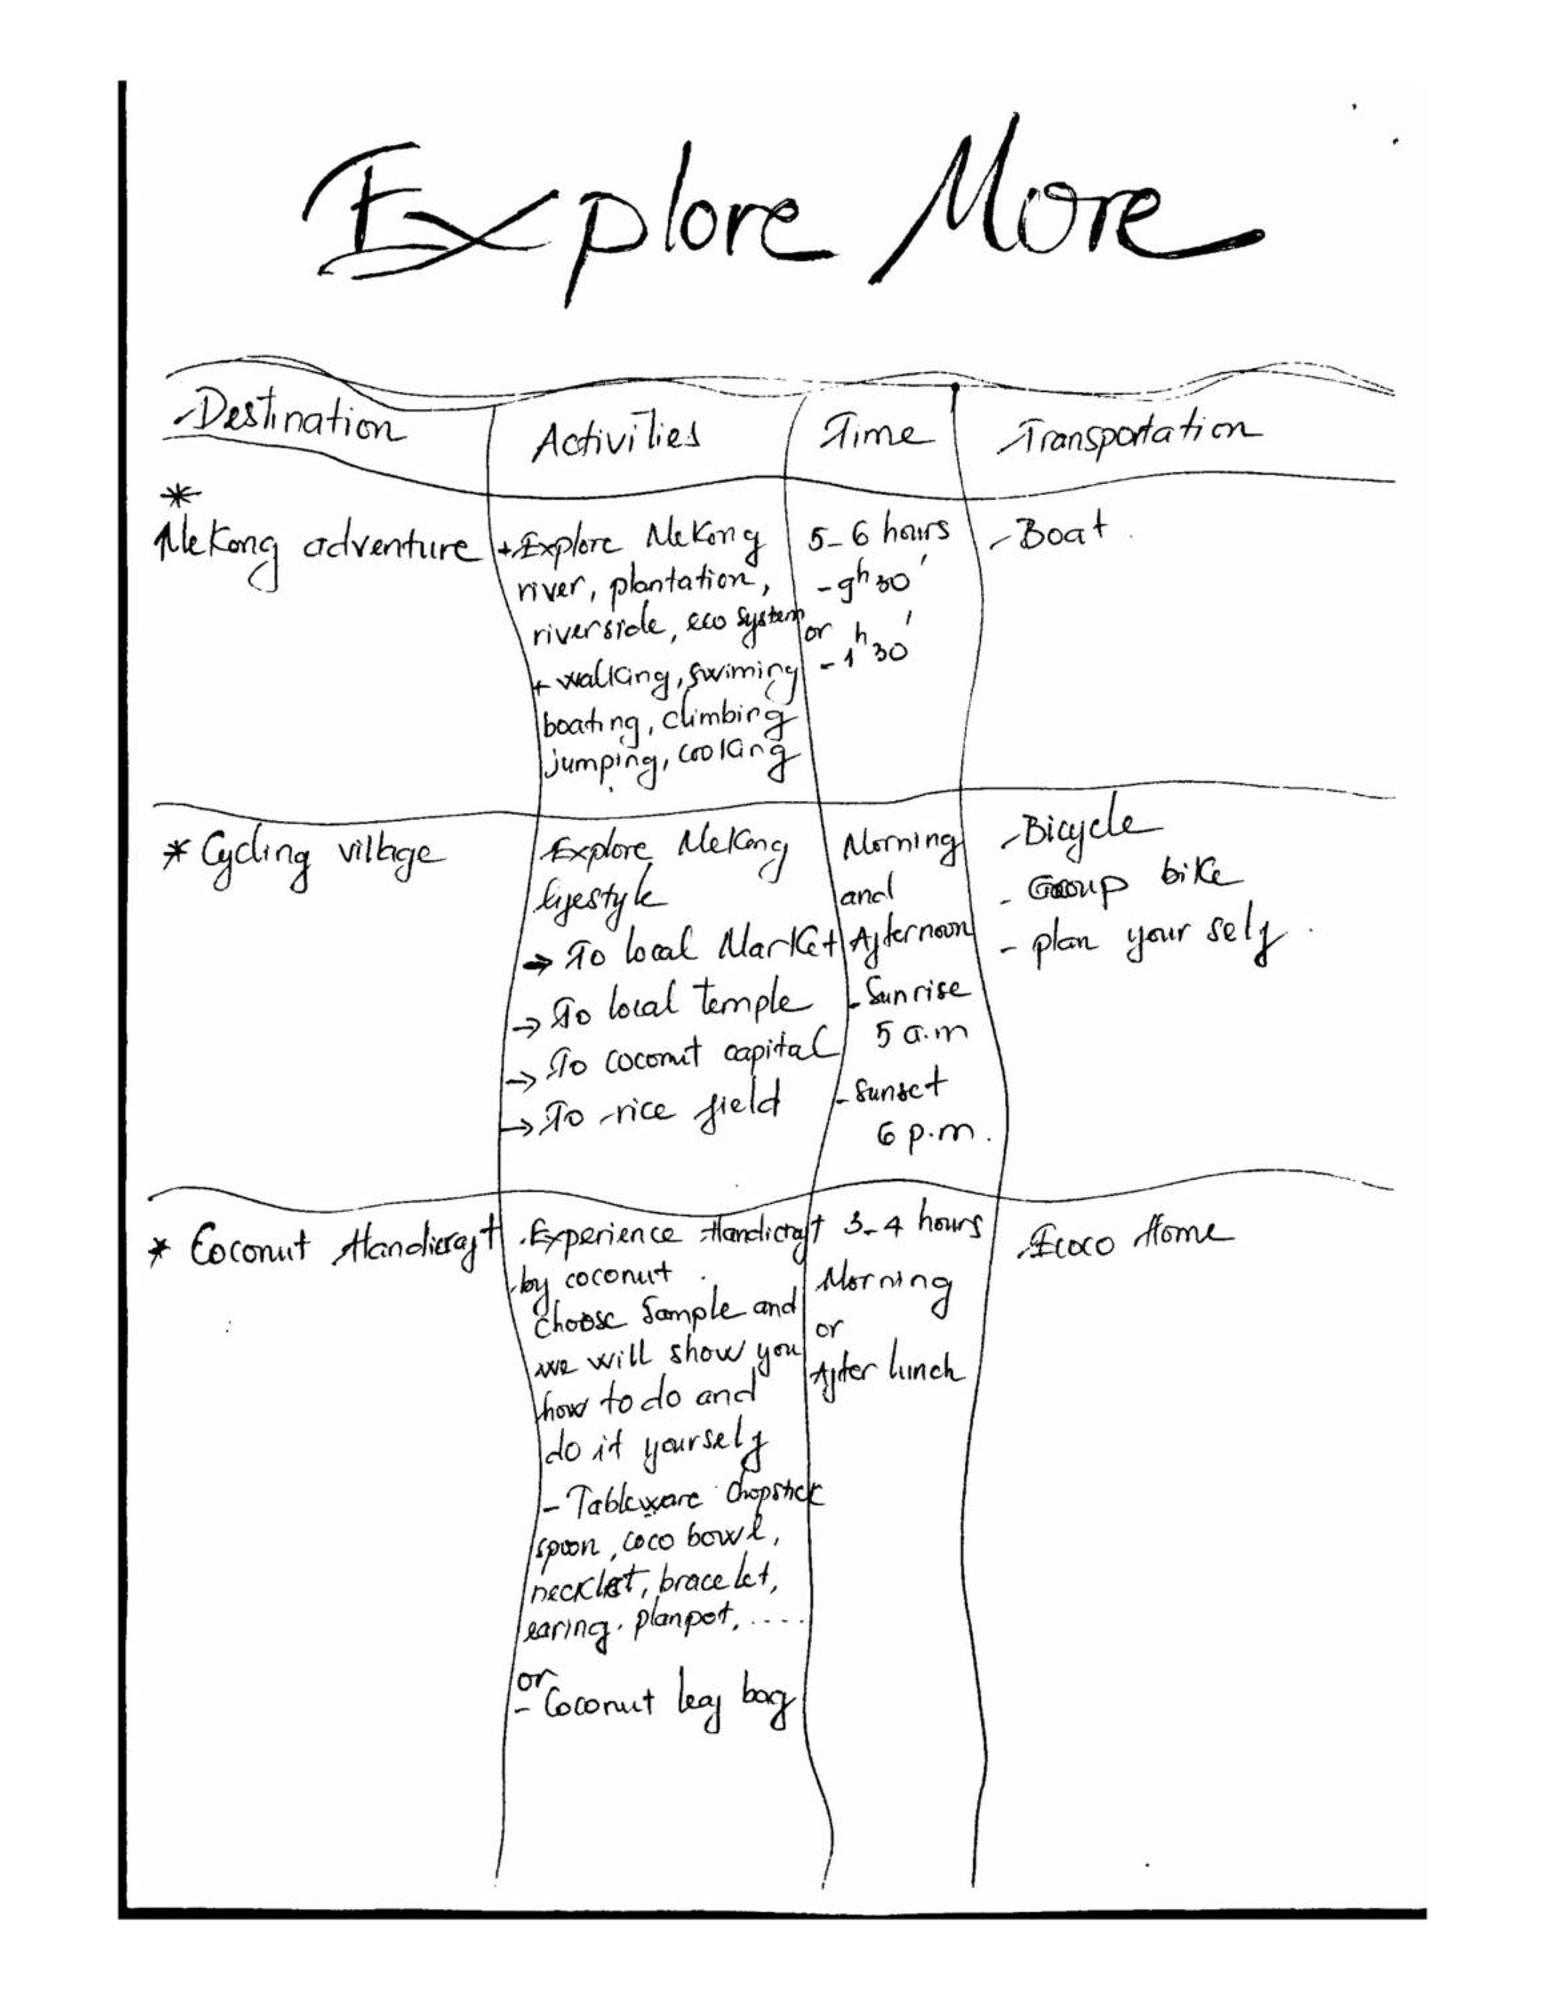 Explore More
Destination
Activities
Time
Transportation
*
Mekong adventure
+ Explore Mekong
river, plantation,
riverside, eco system
+ walking, swiming
boating, climbing
jumping, cooking
5-6 hours
- 9h30'
or
- 1h30'
- Boat.
* Cycling village
Explore Mekong
lifestyle
→ To local Market
→ To local temple
→ To coconut capital
→ To rice field
Morning
and
Afternoon
- Sunrise
5 a.m
- Sunset
6 p.m.
- Bicycle
- Group bike
- plan your self.
* Coconut Handicraft
. Experience Handicraft
by coconut.
choose sample and
we will show you
how to do and
do it yourself
- Tableware chopstick
spoon, coco bowl,
necklet, bracelet,
earing. planpot, .....
or
- Coconut leaf bag
3-4 hours
Morning
or
After lunch
Ecoco Home